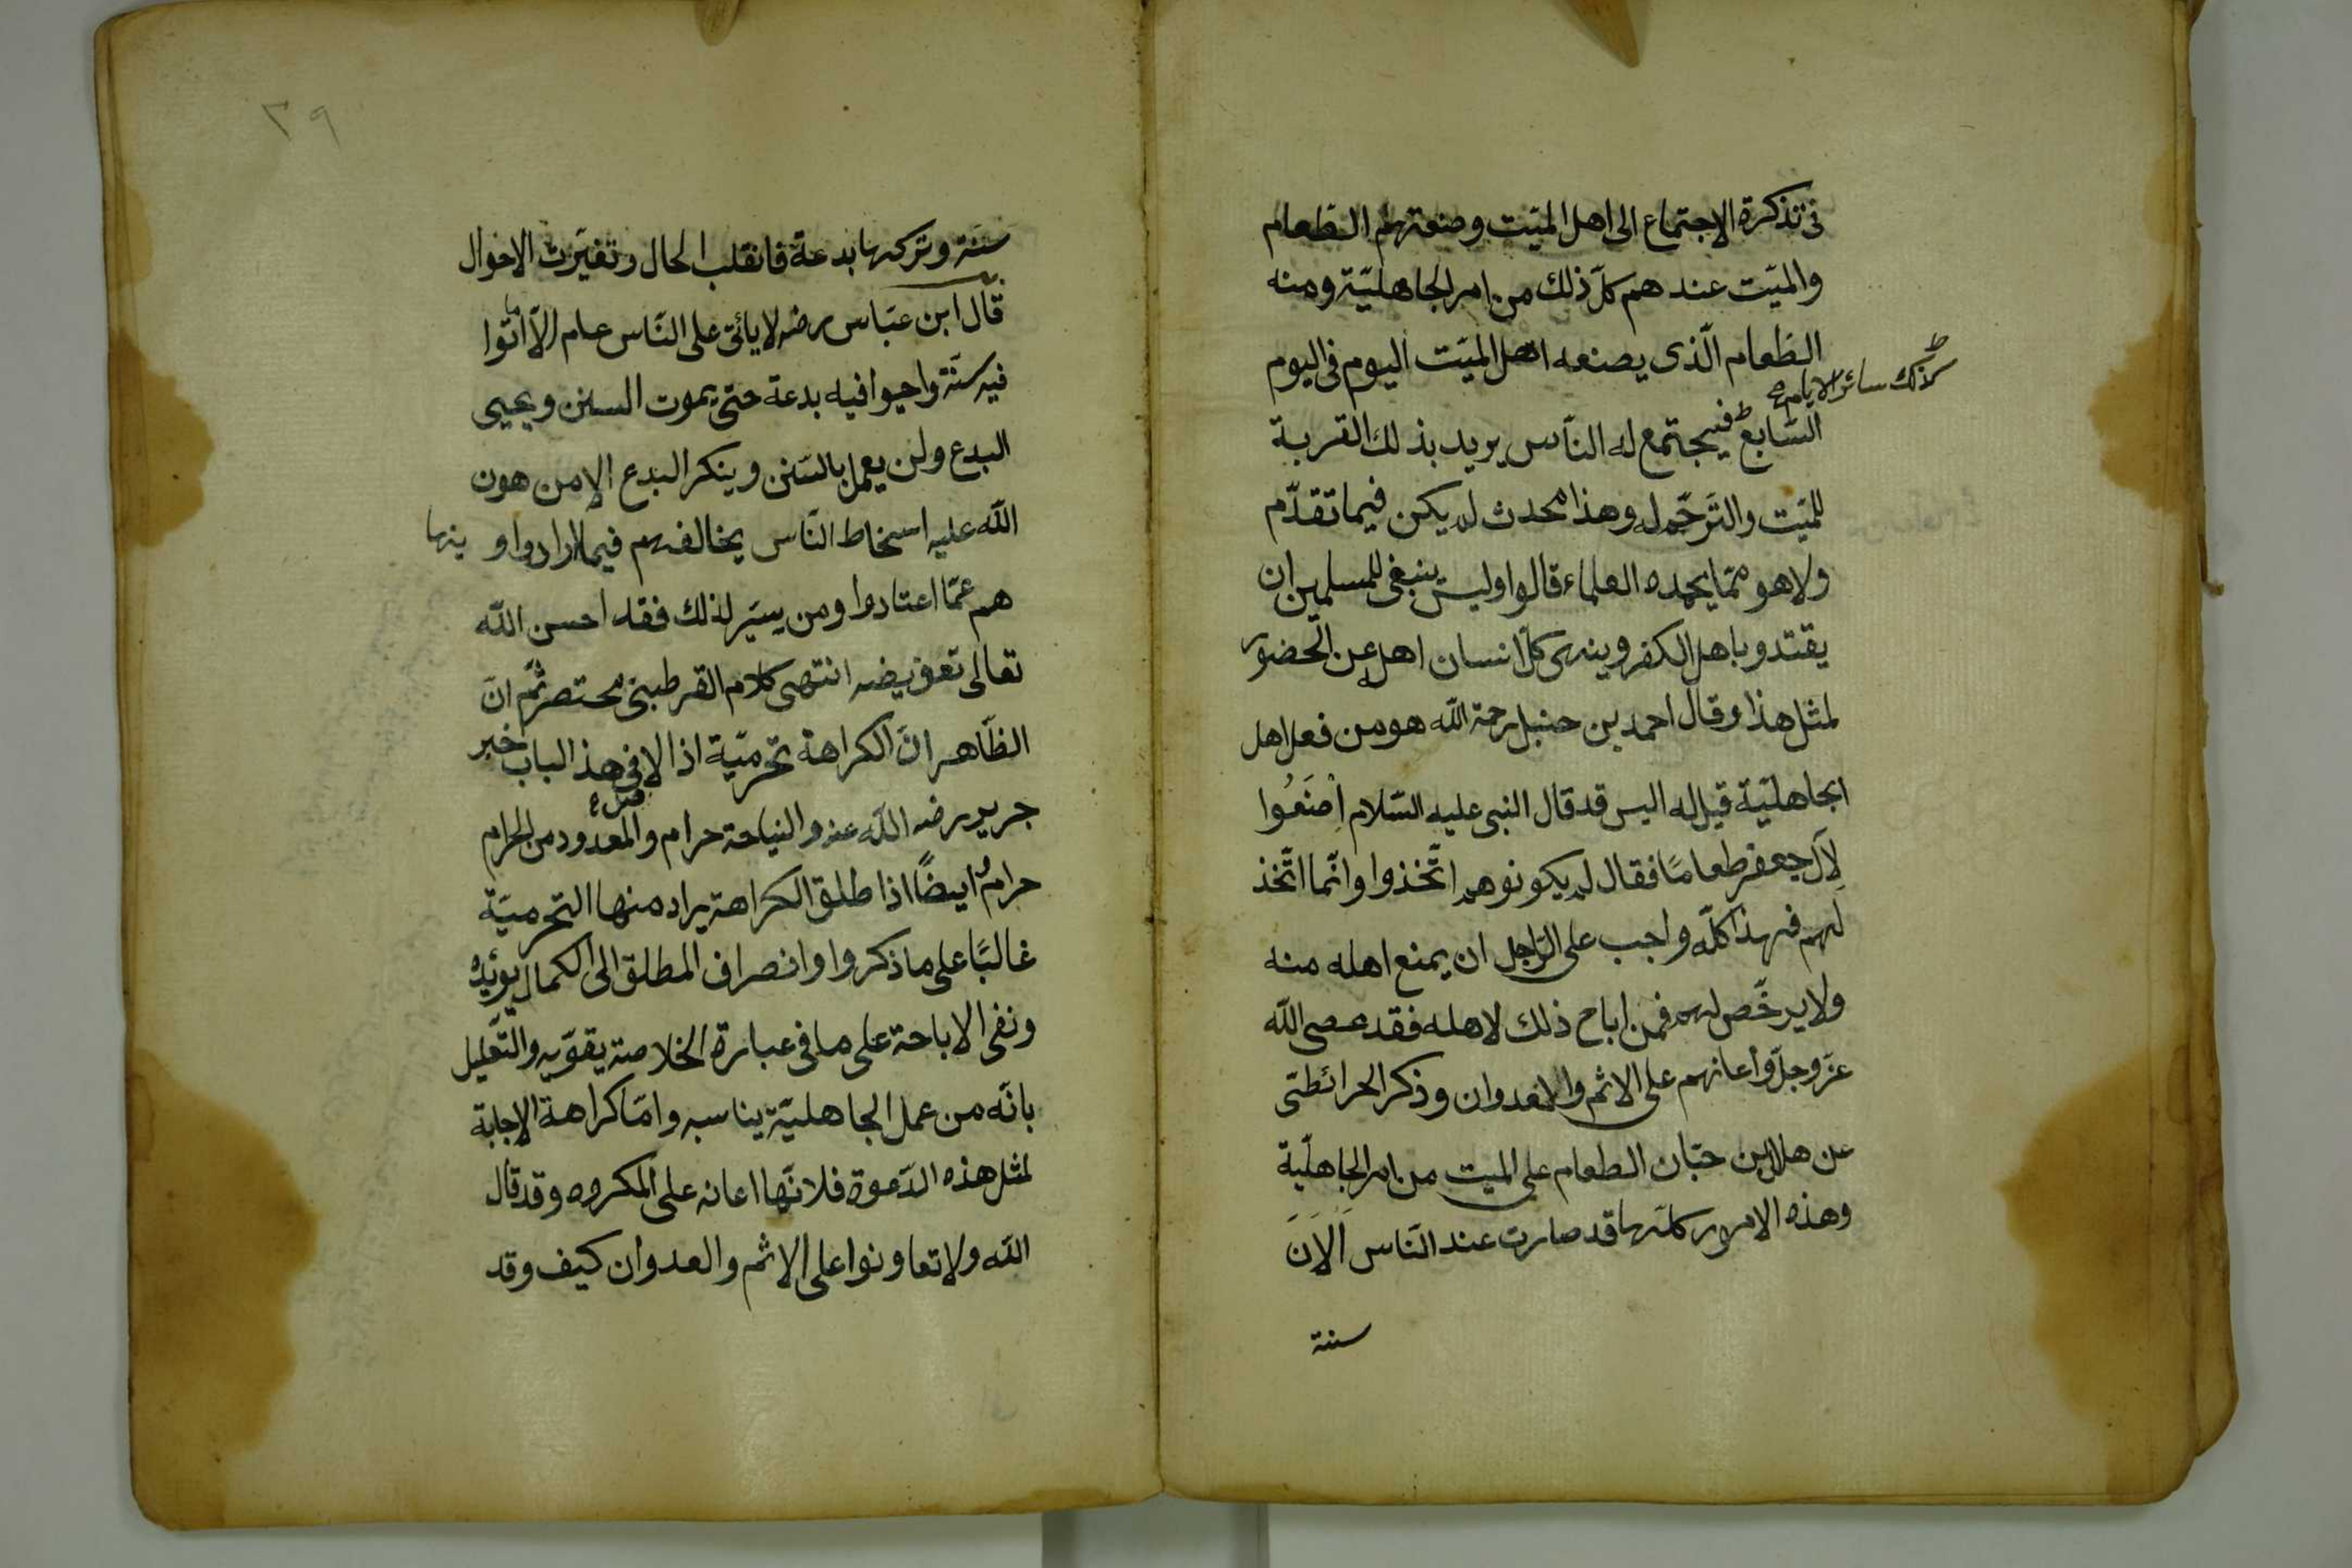 فى تذكرة الاجتماع الى اهل الميّت وصنعتهم الطّعام
والميّت عندهم كلّ ذلك من امر الجاهليّة ومنه
الطّعام الّذى يصنعه اهل الميّت اليوم فى اليوم
كذلك سائر الايام صح
السّابع فيجتمع له النّاس يريد بذلك القربة
للميّت والتّرحّم له وهذا محدث لم يكن فيما تقدّم
ولا هو ممّا يحمده العلماء قالوا وليس ينبغى للمسلمين ان
يقتدو باهل الكفر وينهى كلّ انسان اهله عن الحضور
لمثل هذا وقال احمد بن حنبل رحمة اللّه هو من فعل اهل
الجاهليّة قيل له اليس قد قال النبى عليه السّلام اِصْنَعُوا
لِآل جعفر طعامًا فقال لم يكونوهم اتّخذوا وانّما اتّخذ
لهم فهذا كلّه واجب على الرّاجل ان يمنع اهله منه
ولا يرخّص لهم فمن اباح ذلك لاهله فقد عصى اللّه
عزّ وجلّ واعانهم على الاثم والعدوان وذكر الحرائطى
عن هلال بن حبّان الطعام على الميت من امر الجاهليّة
وهذه الامور كلّها قد صارت عند النّاس اَلآنَ
سنة
٣٩
سنّة وتركها بدعة فانقلب الحال وتغيّرت الاحوال
قال ابن عبّاس رضه لا يأتى على النّاس عام الّا اماتوا
فيه سنّة واحيوا فيه بدعة حتى يموت السنن ويحيى
البدع ولن يعمل بالسّنن وينكر البدع الا من هون
اللّه عليه اسخاط النّاس يخالفهم فيما ارادوا و ينها
هم عمّا اعتادوا ومن يسّير لذلك فقد احسن اللّه
تعالى تعويضه انتهى كلام القرطبى مختصر ثمّ انّ
الظّاهر انّ الكراهة تحرميّة اذا الا فى هذ الباب خبر
جرير رضه اللّه عنه والنياحة حرام والمعدود من الحرام
حرامٌ ايضًا اذا طلق الكراهة يراد منها التحرميّة
غالبًا على ما ذكروا وانصراف المطلق الى الكمال يؤيده
ونفى الاباحة على ما فى عبارة الخلاصة يقوّيه والتّعليل
بانّه من عمل الجاهليّة يناسبه وامّا كراهة الاجابة
لمثل هذه الدّعوة فلانّها اعانه على المكروه وقد قال
اللّه ولا تعاونوا على الاثم والعدوان كيف وقد